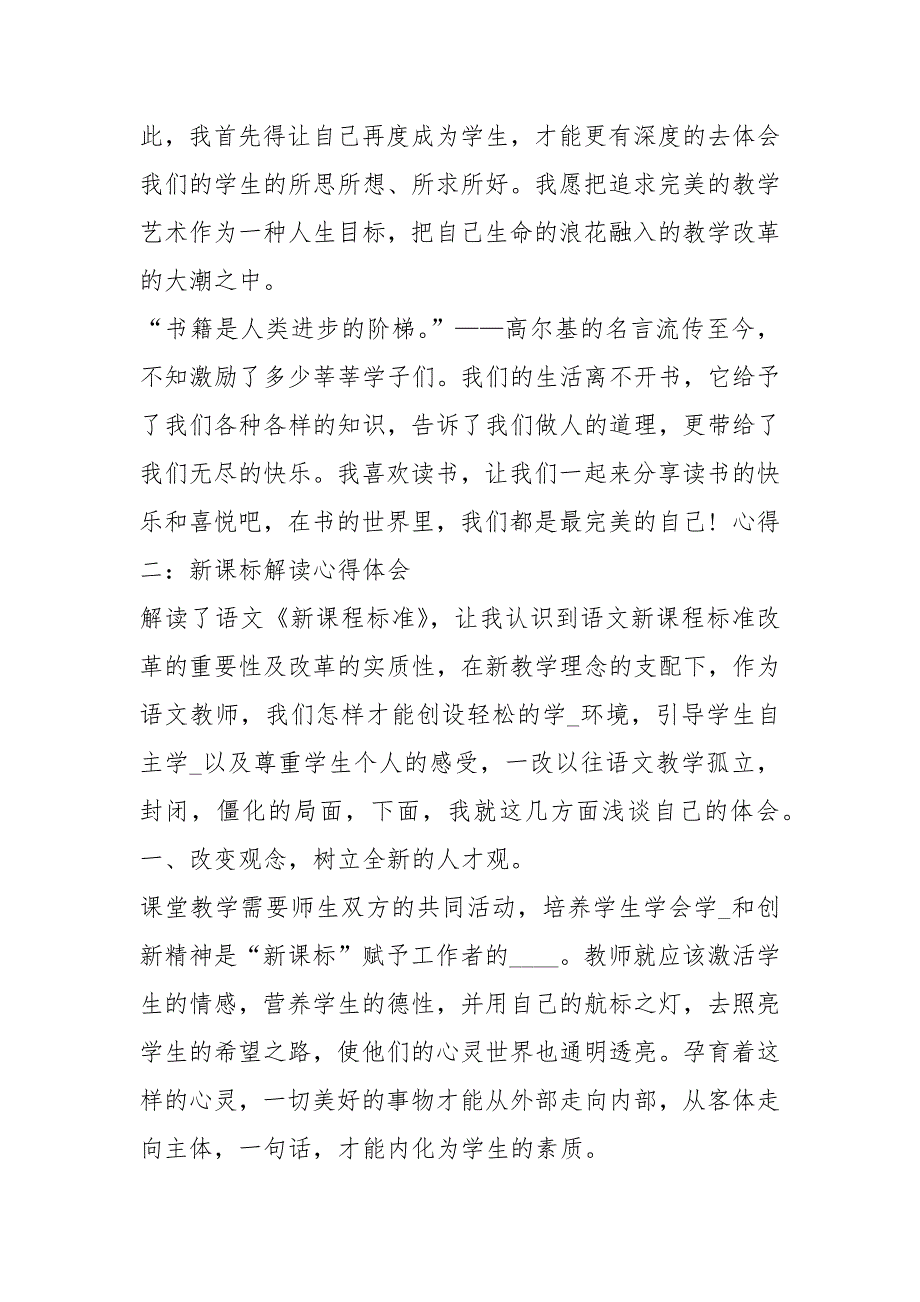 此，我首先得让自己再度成为学生，才能更有深度的去体会
我们的学生的所思所想、所求所好。我愿把追求完美的教学
艺术作为一种人生目标，把自己生命的浪花融入的教学改革
的大潮之中。
“书籍是人类进步的阶梯。”——高尔基的名言流传至今，
不知激励了多少莘莘学子们。我们的生活离不开书，它给予
了我们各种各样的知识，告诉了我们做人的道理，更带给了
我们无尽的快乐。我喜欢读书，让我们一起来分享读书的快
乐和喜悦吧，在书的世界里，我们都是最完美的自己！心得
二：新课标解读心得体会
解读了语文《新课程标准》，让我认识到语文新课程标准改
革的重要性及改革的实质性，在新教学理念的支配下，作为
语文教师，我们怎样才能创设轻松的学_环境，引导学生自
主学_以及尊重学生个人的感受，一改以往语文教学孤立，
封闭，僵化的局面，下面，我就这几方面浅谈自己的体会。
一、改变观念，树立全新的人才观。
课堂教学需要师生双方的共同活动，培养学生学会学_和创
新精神是“新课标”赋予工作者的____。教师就应该激活学
生的情感，营养学生的德性，并用自己的航标之灯，去照亮
学生的希望之路，使他们的心灵世界也通明透亮。孕育着这
样的心灵，一切美好的事物才能从外部走向内部，从客体走
向主体，一句话，才能内化为学生的素质。